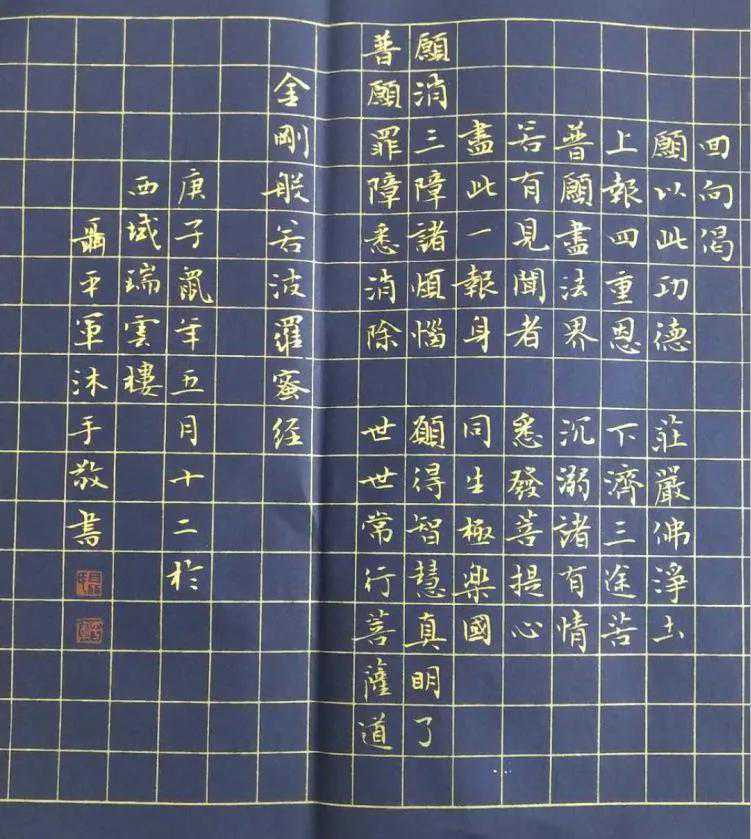 回向偈
願以此功德 莊嚴佛淨土
上報四重恩 下濟三途苦
普願盡法界 沉溺諸有情
若有見聞者 悉發菩提心
盡此一報身 同生極樂國
願消三障諸煩惱 願得智慧真明了
普願罪障悉消除 世世常行菩薩道
金剛般若波羅蜜经
庚子鼠年五月十二於
西域瑞雲樓
聶平軍沐手敬書